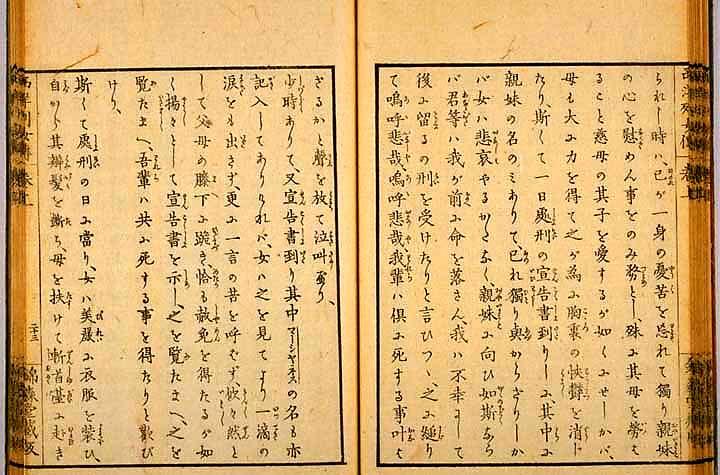 られし時ハ、己が一身の憂苦を忘れて獨り親妹
の心を慰めん事をのみ務とし殊に其母を勞ハ
ること慈母の其子を愛するが如くにせしかバ、
母も大に力を得て之が為に胸裏の怏鬱を消じ
たり、斯くて一日處刑の宣告書到りしに、其中に
親妹の名のミありて、己れ獨り與からざりしか
バ女ハ悲哀やるかたなく親妹に向ひ如斯なら
バ君等ハ我が前に命を落さん、我ハ不幸にして
後に留るの刑を受けたりと言ひつゝ、之に縋り
て嗚呼悲哉嗚呼悲哉我輩ハ倶に死する事叶ハ
ざるかと聲を放て泣叫けり、
少時ありて、又宣告書到り其中の名も亦
記入してありけれバ、女ハ之を見てより一滴の
涙をも出さず、更に一言の苦を呼バず、欣々然と
して父母の膝下に跪き恰も赦免を得たるが如
く揚々として宣告書を示し、之を覧たまへ、之を
覧たまへ、吾輩ハ共に死する事を得たりと歓び
けり、
斯くて處刑の日に當り、女ハ美麗に衣服を装ひ、
自から其辮髪を斷ち、母を扶けて斬首臺に赴き
二十三
錦森堂藏版